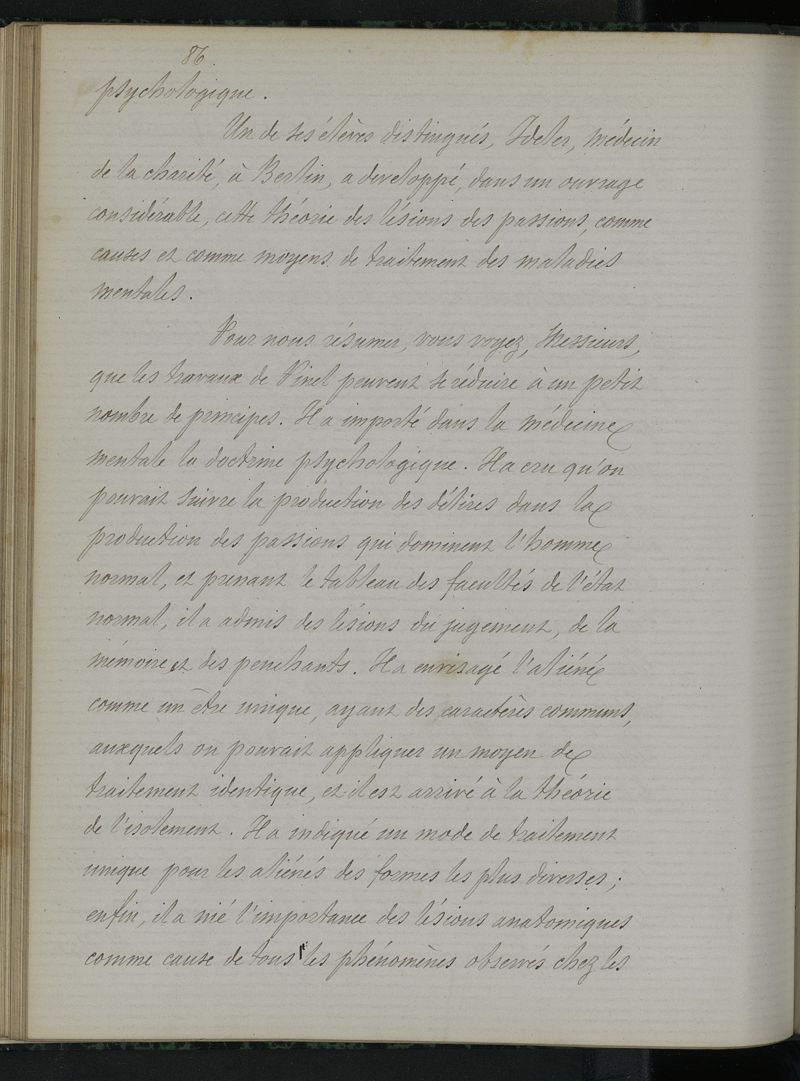 86.
psychologique.
Un de ses élèves distingués, Ideler, médecin
de la charité, à Berlin, a developpé, dans un ouvrage
considérable, cette théorie des lésions des passions, comme
causes et comme moyens de traitement des maladies
mentales.
Pour nous résumer, vous voyez, Messieurs,
que les travaux de Pinel peuvent se réduire à un petit
nombre de principes. Il a importé dans la médecine
mentale la doctrine psychologique. Il a cru qu'on
pouvait suivre la production des délires dans la
production des passions qui dominent l'homme
normal, et prenant le tableau des facultés de l'état
normal, il a admis des lésions du jugement, de la
mémoire et des penchants. Il a envisagé l'aliéné
comme un être unique, ayant des caractères communs,
auxquels on pouvait appliquer un moyen de
traitement identique, et il est arrivé à la théorie
de l'isolement. Il a indiqué un mode de traitement
unique pour les aliénés des formes les plus diverses ;
enfin, il a nié l'importance des lésions anatomiques
comme cause de tous les phénomènes observés chez les